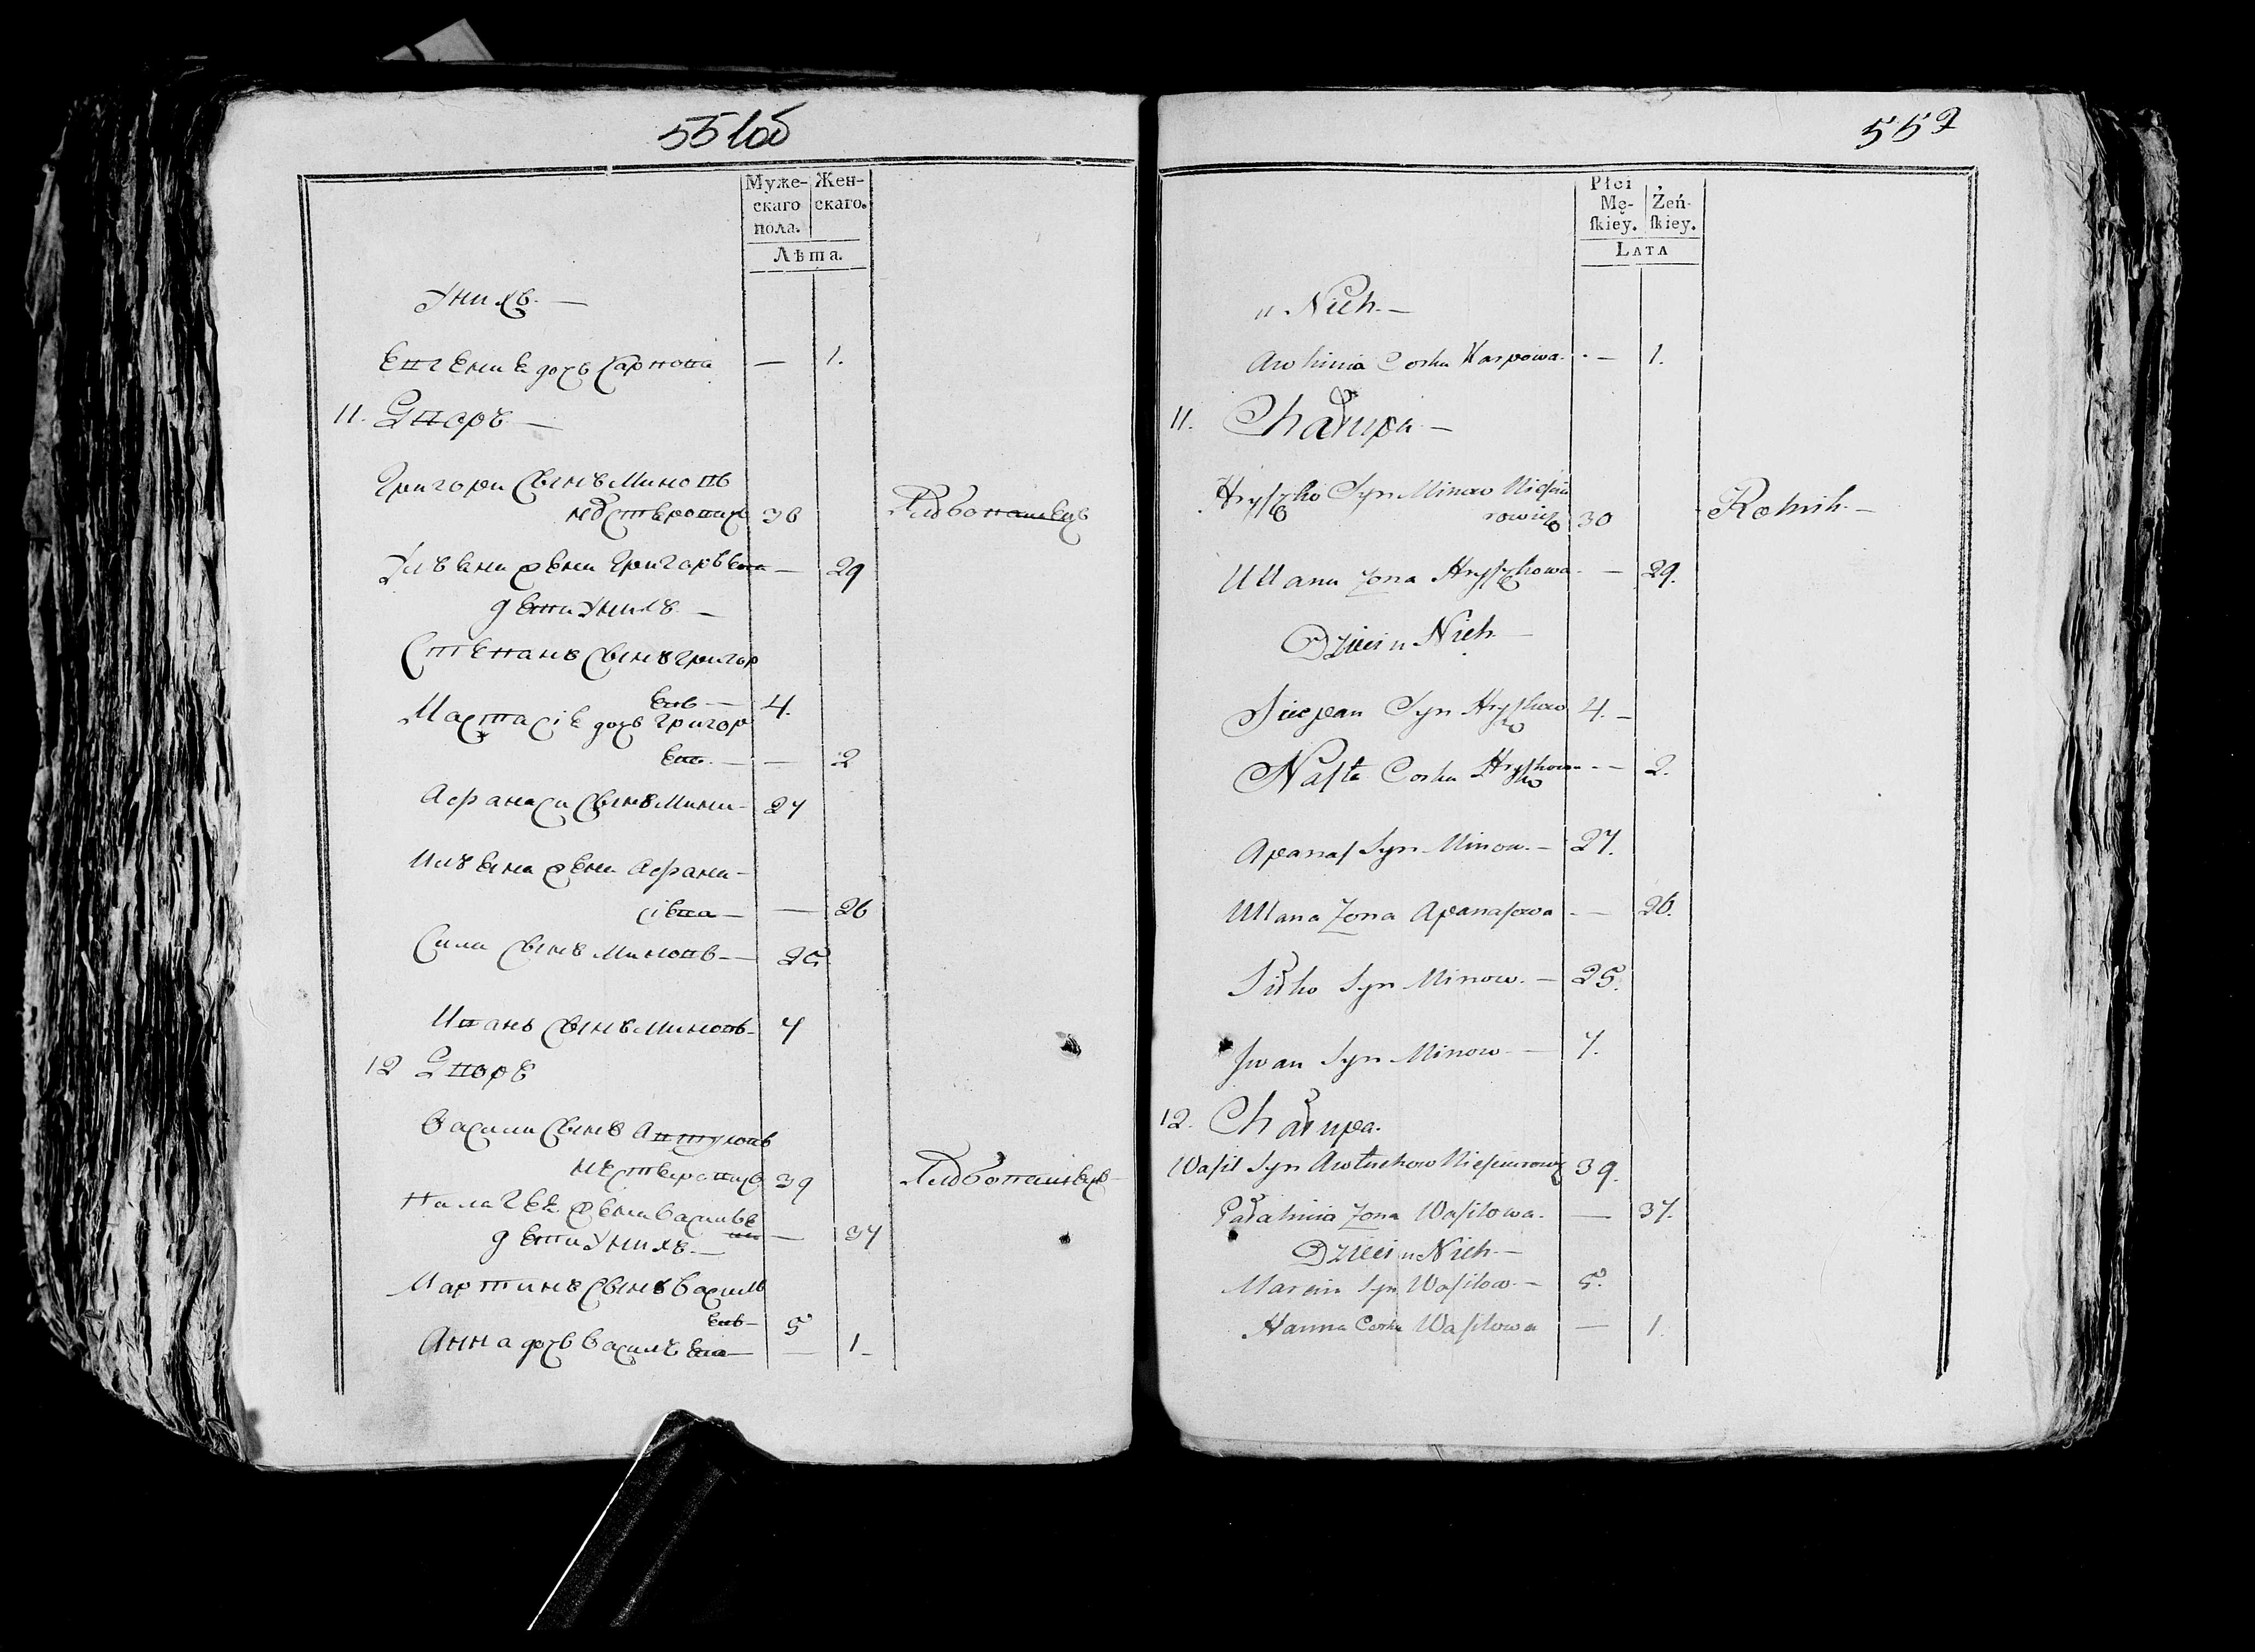 551об
Муже- Жен-
скаго скаго.
пола.
Лѣта.
Унихъ. —
Евгения дочь Карпова — 1.
11. Дворъ —
Григори Сынъ Миновъ
Нестеровичъ 30
Ульяна жена Григорьева — 29
дети Унихъ —
Степанъ Сынъ Григор
евъ — 4.
Настасія дочь Григор
ева. — — 2
Афанаси Сынъ Мина — 27
Ульяна жена Афана-
сіева — — 26
Сила Сынъ Миновъ — 25
Иванъ Сынъ Миновъ — 7
12 Дворъ
Василь Сынъ Автуховъ
Нестеровичъ 39
Палагея жена Василье
ва — 37
дети Унихъ. —
Мартинъ Сынъ Василь
евъ — 5
Анна дочь Васильева — — 1 —
552
Płci
Mę- Żeń-
ſkiey. ſkiey.
LATA
u Nich. —
Awhinia Corka Karpowa. — 1.
11. Chałupa —
Hryſzko Syn Minow Nieſciu
rowicz 30 Rolnik. —
Ullana Zona Hryſzkowa — 29.
Dzieci u Nich —
Sciepan Syn Hryſkow 4. —
Naſta Corka Hryſkowa — 2.
Apanaſ Syn Minow. — 27.
Ullana Zona Apanaſowa — 26.
Siłko Syn Minow. — 25.
Jwan Syn Minow — 7.
12. Chałupa.
Waſil Syn Awtuchow Nieſciurowicz 39.
Pałahnia Zona Waſilowa. — 37.
Dzieci u Nich —
Marcin Syn Waſilow. — 5.
Hanna Corka Waſilowa — 1.